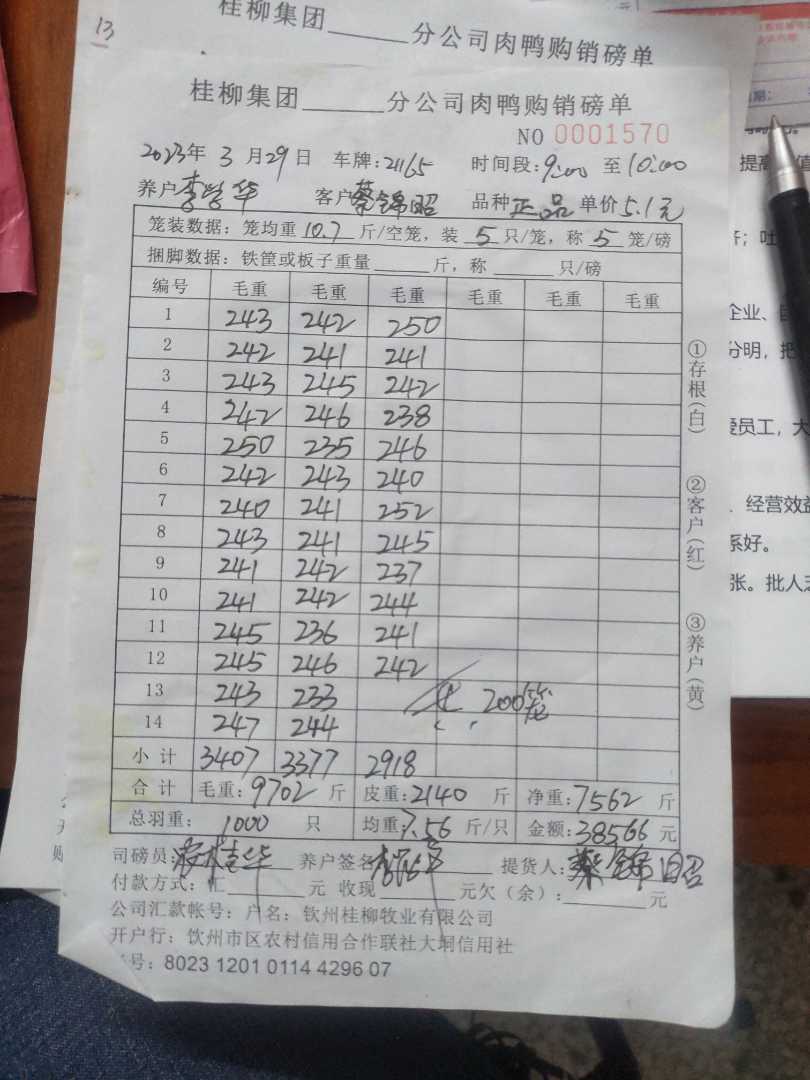 13
桂柳集团______分公司肉鸭购销磅单
桂柳集团______分公司肉鸭购销磅单
NO 0001570
2023年 3 月 29 日 车牌: 21165 时间段: 9:00 至 10:00
养户 李学华 客户 蔡锦昭 品种 正品 单价 5.1元
笼装数据: 笼均重 10.7 斤/空笼, 装 5 只/笼, 称 5 笼/磅
捆脚数据: 铁筐或板子重量______斤, 称______只/磅
编号 毛重 毛重 毛重 毛重 毛重 毛重
1 243 242 250
2 242 241 241
3 243 245 242
4 242 246 238
5 250 235 246
6 242 243 240
7 240 241 252
8 243 241 245
9 241 242 237
10 241 242 244
11 245 236 241
12 245 246 242
13 243 233 200笼
14 247 244
小计 3407 3377 2918
合计 毛重: 9702 斤 皮重: 2140 斤 净重: 7562 斤
总羽重: 1000 只 均重: 7.56 斤/只 金额: 38566 元
司磅员: 养户签名 提货人: 蔡锦昭
付款方式: 汇______元 收现______元欠(余): ______元
公司汇款帐号: 户名: 钦州桂柳牧业有限公司
开户行: 钦州市区农村信用合作联社大垌信用社
号: 8023 1201 0114 4296 07
①存根(白)
②客户(红)
③养户(黄)
提高
企业、
分明, 把
爱员工, 大
、经营效益
系好。
张。批人